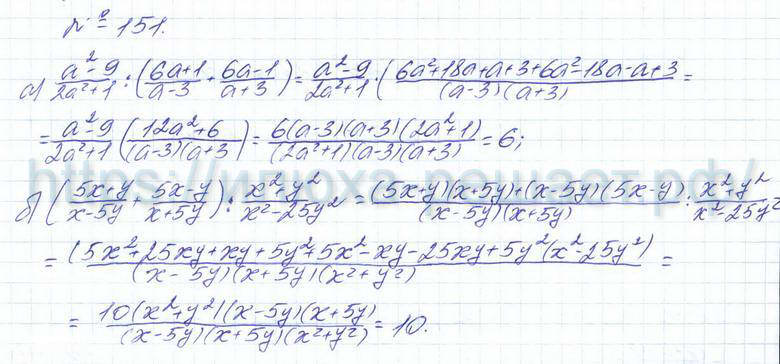 № 151.
а) (a²-9)/(2a²+1) : ((6a+1)/(a-3) + (6a-1)/(a+3)) = (a²-9)/(2a²+1) · (6a²+18a+a+3+6a²-18a-a+3)/((a-3)(a+3)) =
= (a²-9)/(2a²+1) ((12a²+6)/((a-3)(a+3))) = (6(a-3)(a+3)(2a²+1))/((2a²+1)(a-3)(a+3)) = 6;
https://илюха-решает.рф/
б) ((5x+y)/(x-5y) + (5x-y)/(x+5y)) : (x²+y²)/(x²-25y²) = ((5x+y)(x+5y)+(x-5y)(5x-y))/((x-5y)(x+5y)) : (x²+y²)/(x²-25y²)
= (5x²+25xy+xy+5y²+5x²-xy-25xy+5y²(x²-25y²))/((x-5y)(x+5y)(x²+y²)) =
= (10(x²+y²)(x-5y)(x+5y))/((x-5y)(x+5y)(x²+y²)) = 10.